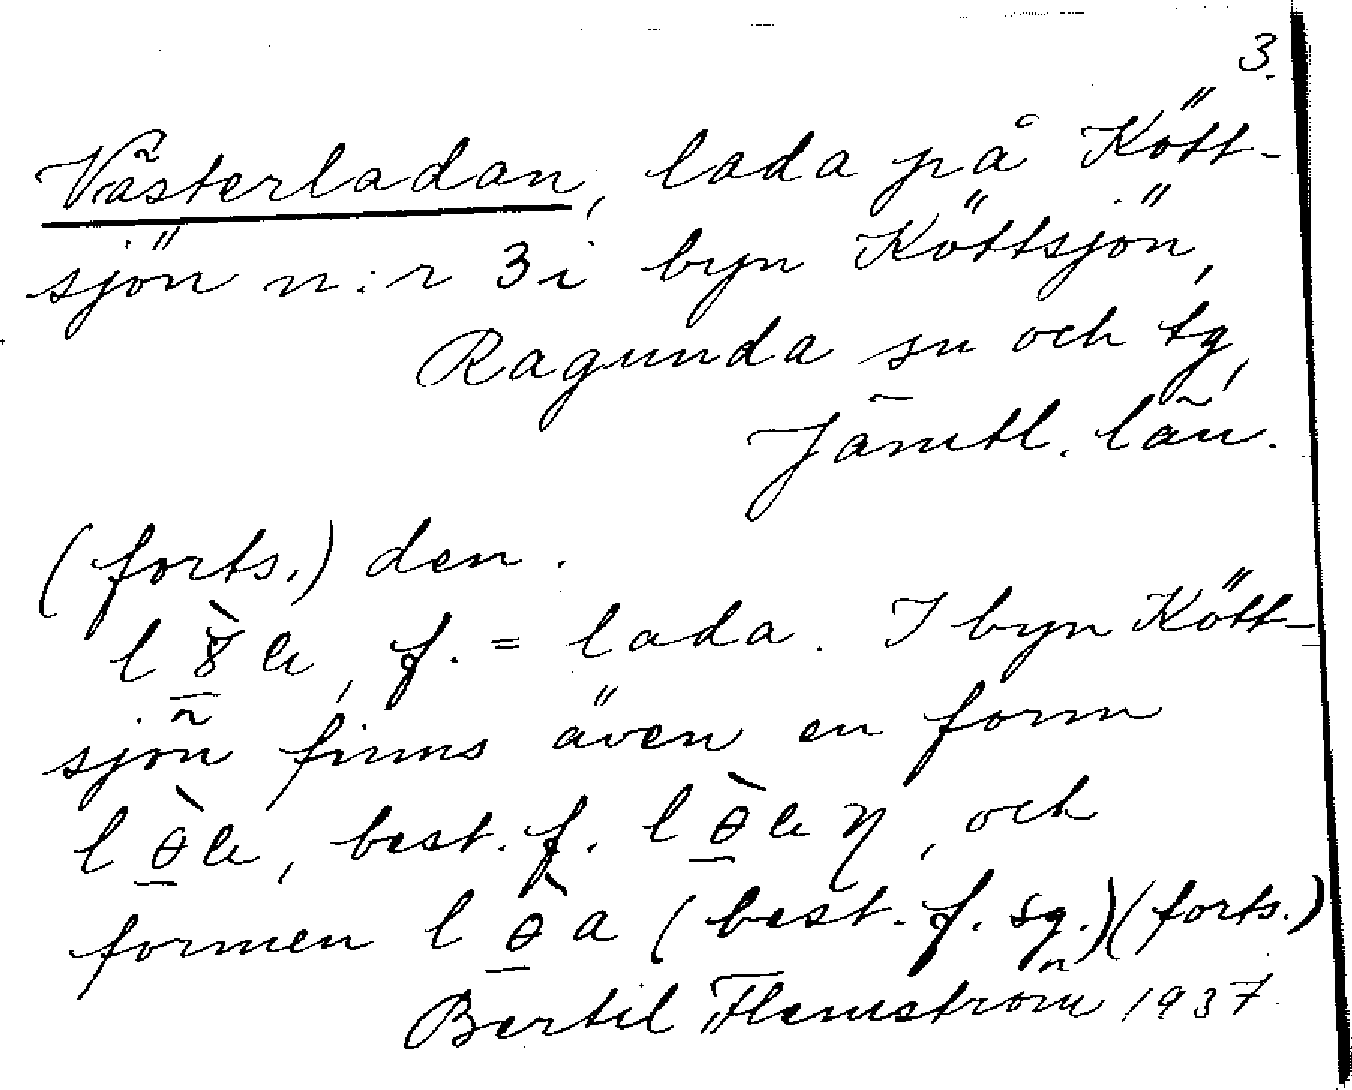 3.
Västerladan, lada på Kött-
sjön n:r 3 i byn Köttsjön,
Ragunda sn och tg,
Jämtl. län.
(forts.) den.
f. = lada. I byn Kött-
sjön finns även en form
best. f. och
formen (best. f. sg.) (forts.)
Bertil Flemström 1937